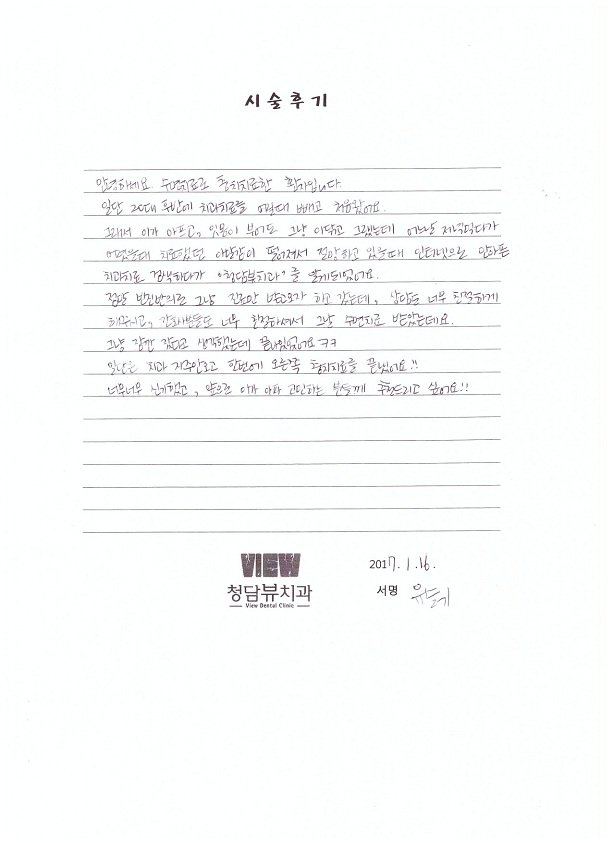 시술후기
안녕하세요. 수면치료로 충치치료한 환자입니다.
일단 20대 후반에 치과치료를 어릴때 빼고 처음왔어요.
그래서 이가 아프고, 잇몸이 부어도 그냥 이닦고 그랬는데 어느날 저녁먹다가
어렸을때 치료했던 아말감이 떨어져서 절망하고 있을때 인터넷으로 안아픈
치과치료 검색하다가 "청담뷰치과"를 알게되었어요.
정말 반신반의로 그냥 진료만 받고오자 하고 갔는데, 상담도 너무 친절하게
해주시고, 간호사분들도 너무 친절하셔서 그냥 수면치료 받았는데요.
그냥 잠깐 잤다고 생각했는데 끝나있었어요ㅋㅋ
일단은 치과 자주안오고 한번에 오른쪽 충치치료를 끝냈어요!!
너무너무 신기했고, 앞으로 이가 아파 고민하는 분들께 추천드리고 싶어요!!
VIEW
청담뷰치과
View Dental Clinic
2017.1.16.
서명